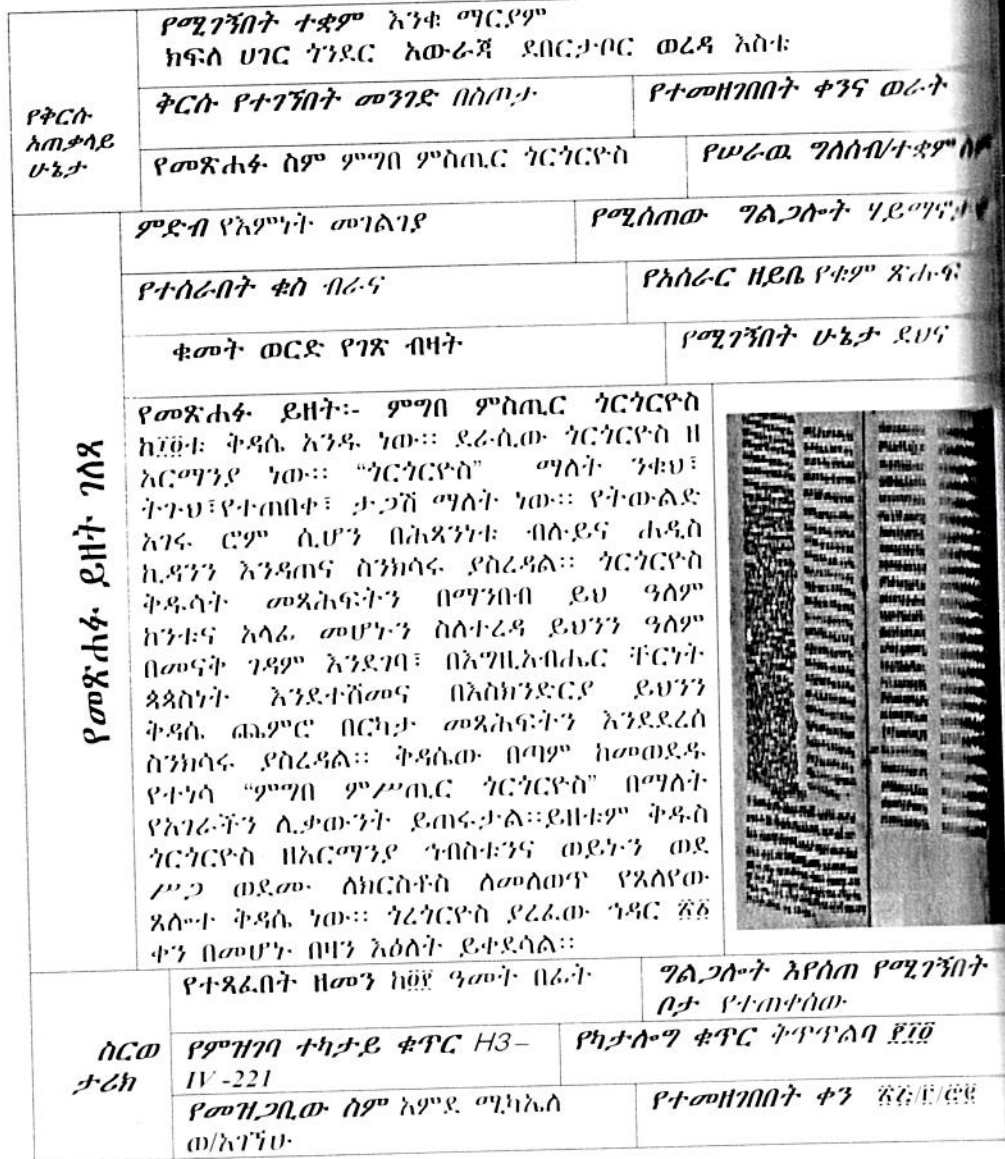 የሚገኝበት ተቋም እንቁ ማርያም
ክፍለ ሀገር ጎንደር አውራጃ ደበርታቦር ወረዳ እስቴ
የቅርሱ አጠቃላይ ሁኔታ
ቅርሱ የተገኘበት መንገድ በስጦታ
የተመዘገበበት ቀንና ወራት
የመጽሐፉ ስም ምግበ ምስጢር ጎርጎርዮስ
የሠራዉ ግለሰብ/ተቋም
ምድብ የእምነት መገልገያ
የሚሰጠው ግልጋሎት
የተሰራበት ቁስ ብራና
የአሰራር ዘይቤ የቁም ጽሑፍ
ቁመት ወርድ የገጽ ብዛት
የሚገኝበት ሁኔታ ደህና
የመጽሐፉ ይዘት ገለጻ
የመጽሐፉ ይዘት፡- ምግበ ምስጢር ጎርጎርዮስ
ከ፲፬ቱ ቅዳሴ አንዱ ነው። ደራሲው ጎርጎርዮስ ዘ
አርማንያ ነው። “ጎርጎርዮስ” ማለት ንቁህ፣
ትጉህ፣የተጠበቀ፣ ታጋሽ ማለት ነው። የትውልድ
አገሩ ሮም ሲሆን በሕጻንነቱ ብሉይና ሐዲስ
ኪዳንን እንዳጠና ስንክሳሩ ያስረዳል። ጎርጎርዮስ
ቅዱሳት መጻሕፍትን በማንበብ ይህ ዓለም
ከንቱና አላፊ መሆኑን ስለተረዳ ይህንን ዓለም
በመናቅ ገዳም እንደገባ፣ በእግዚአብሔር ቸርነት
ጳጳስነት እንደተሸመና በእስክንድርያ ይህንን
ቅዳሴ ጨምሮ በርካታ መጻሕፍትን እንደደረሰ
ስንክሳሩ ያስረዳል። ቅዳሴው በጣም ከመወደዱ
የተነሳ “ምግበ ምሥጢር ጎርጎርዮስ” በማለት
የአገራችን ሊቃውንት ይጠሩታል።ይዘቱም ቅዱስ
ጎርጎርዮስ ዘአርማንያ ኅብስቱንና ወይኑን ወደ
ሥጋ ወደሙ ለክርስቶስ ለመለወጥ የጸለየው
ጸሎተ ቅዳሴ ነው። ጎረጎርዮስ ያረፈው ኅዳር
ቀን በመሆኑ በዛን እዕለት ይቀደሳል።
ስርወ ታሪክ
የተጻፈበት ዘመን ዓመት በፊት
ግልጋሎት እየሰጠ የሚገኝበት
ቦታ የተጠቀሰው
የምዝገባ ተካታይ ቁጥር H3–
IV -221
የካታሎግ ቁጥር ትጥጥልባ
የመዝጋቢው ስም አምደ ሚካኤለ
ወ/አገኘሁ
የተመዘገበበት ቀን